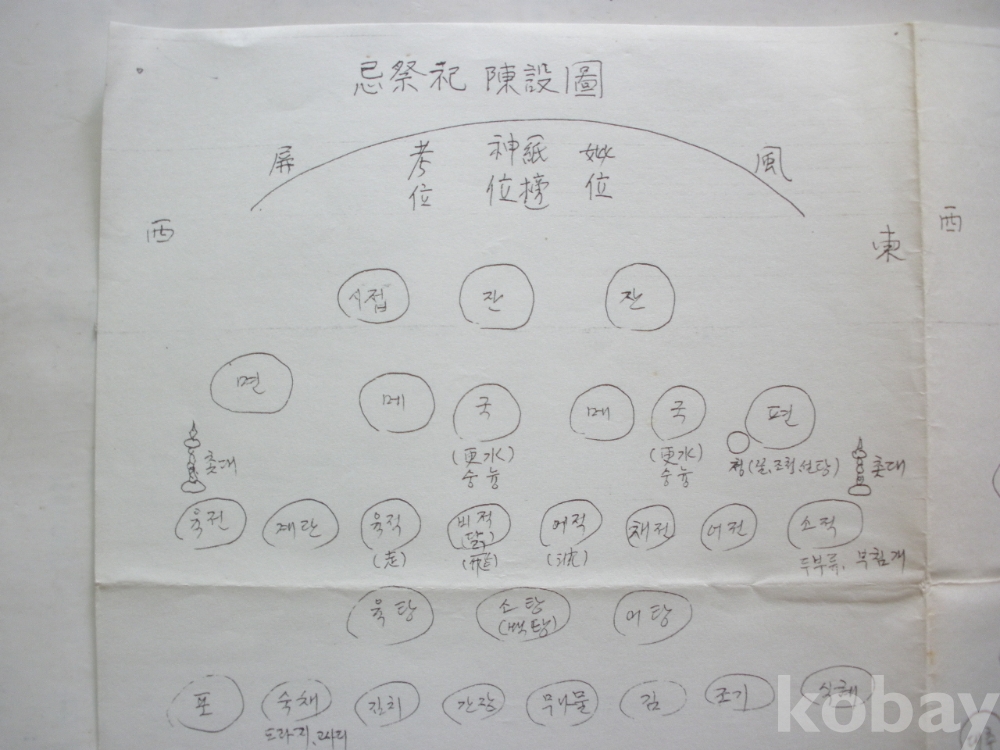 忌祭祀 陳設圖
屏 考位 神位 紙榜 妣位 風
西 東 西
시접 잔 잔
면 메 국 메 국 편
(更水) 숭늉 (更水) 숭늉
청(꿀,조청,설탕)
촛대 촛대
육전 계란 육적 비적 어적 채전 어전 소적
(走) (닭) (飛)
두부류, 부침개
육탕 소탕 어탕
포 숙채 김치 간장 무나물 김 조기 식혜
도라지, 고사리
kobay